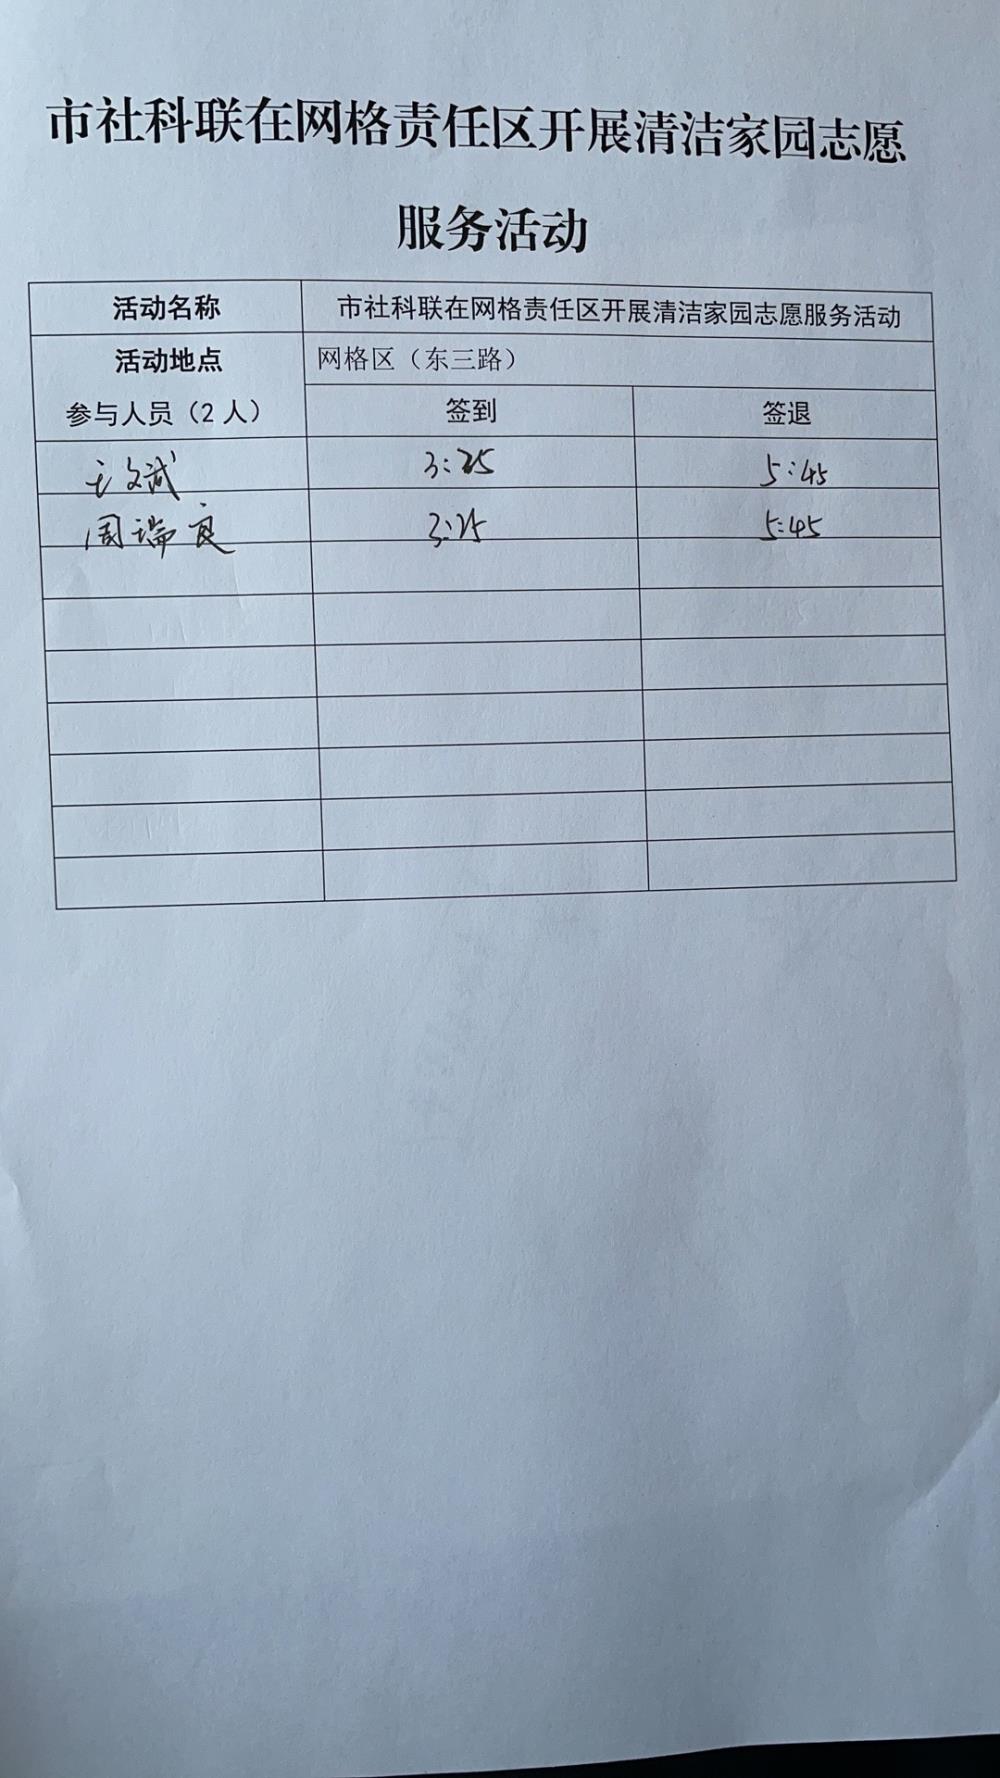 市社科联在网格责任区开展清洁家园志愿
服务活动
活动名称 市社科联在网格责任区开展清洁家园志愿服务活动
活动地点 网格区（东三路）
参与人员（2人） 签到 签退
王文斌 3:25 5:45
周瑞良 3:25 5:45